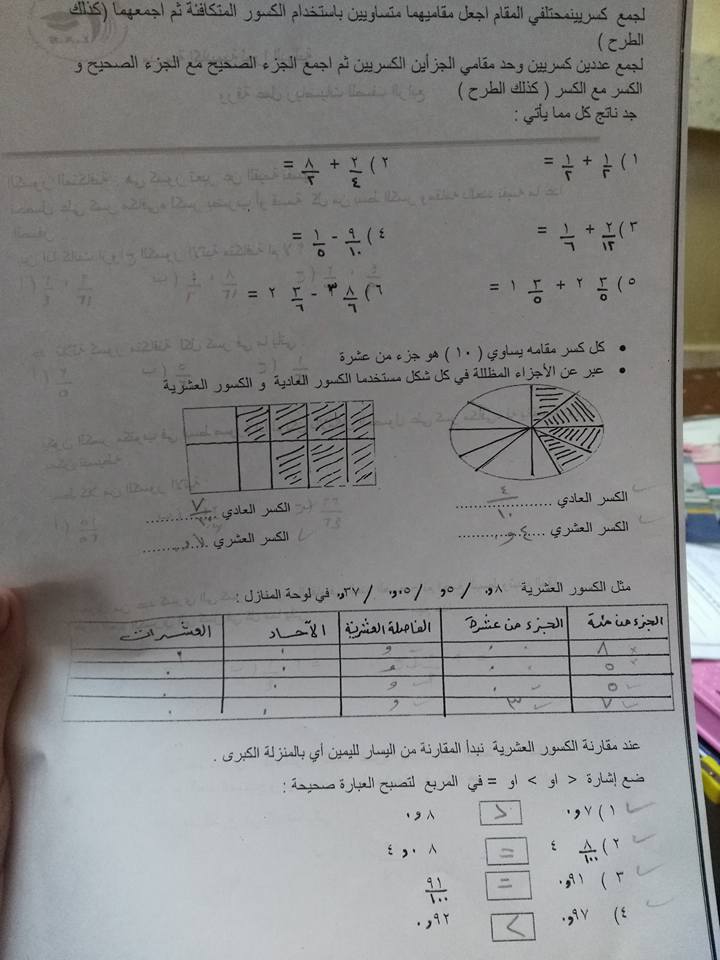 لجمع كسريينمختلفي المقام اجعل مقاميهما متساويين باستخدام الكسور المتكافئة ثم اجمعهما (كذلك
الطرح )
لجمع عددين كسريين وحد مقامي الجزأين الكسريين ثم اجمع الجزء الصحيح مع الجزء الصحيح و
الكسر مع الكسر ( كذلك الطرح )
جد ناتج كل مما يأتي :
١ ) ١/٢ + ١/٢ = ٢ ) ٢/٤ + ٨/٢ =
٣ ) ٢/١٢ + ١/٦ = ٤ ) ٩/١٠ - ١/٥ =
٥ ) ٣/٥ ٢ + ٣/٥ ١ = ٦ ) ٨/٦ ٣ - ٣/٦ ٢ =
• كل كسر مقامه يساوي ( ١٠ ) هو جزء من عشرة
• عبر عن الأجزاء المظللة في كل شكل مستخدما الكسور العادية و الكسور العشرية
الكسر العادي ٤/١٠ الكسر العادي
الكسر العشري ٤,و٠ الكسر العشري
مثل الكسور العشرية ٨و٠ / ٥و٠ / ٠٥و٠ / ٣٧و٠ في لوحة المنازل :
الجزء من مئة الجزء من عشرة الفاصلة العشرية الآحاد العشرات
٨ ٠ و ٠ ٠
٥ ٠ و ٠ ٠
٥ ٠ و ٠ ٠
٧ ٣ و ٠ ٠
عند مقارنة الكسور العشرية نبدأ المقارنة من اليسار لليمين أي بالمنزلة الكبرى .
ضع إشارة < او > او = في المربع لتصبح العبارة صحيحة :
١ ) ٧و٠ < ٨و٠
٢ ) ٨/١٠٠ ٤ = ٠٨و٤
٣ ) ٩١و٠ = ٩١/١٠٠
٤) ٩٧و٠ > ٩٢و٠